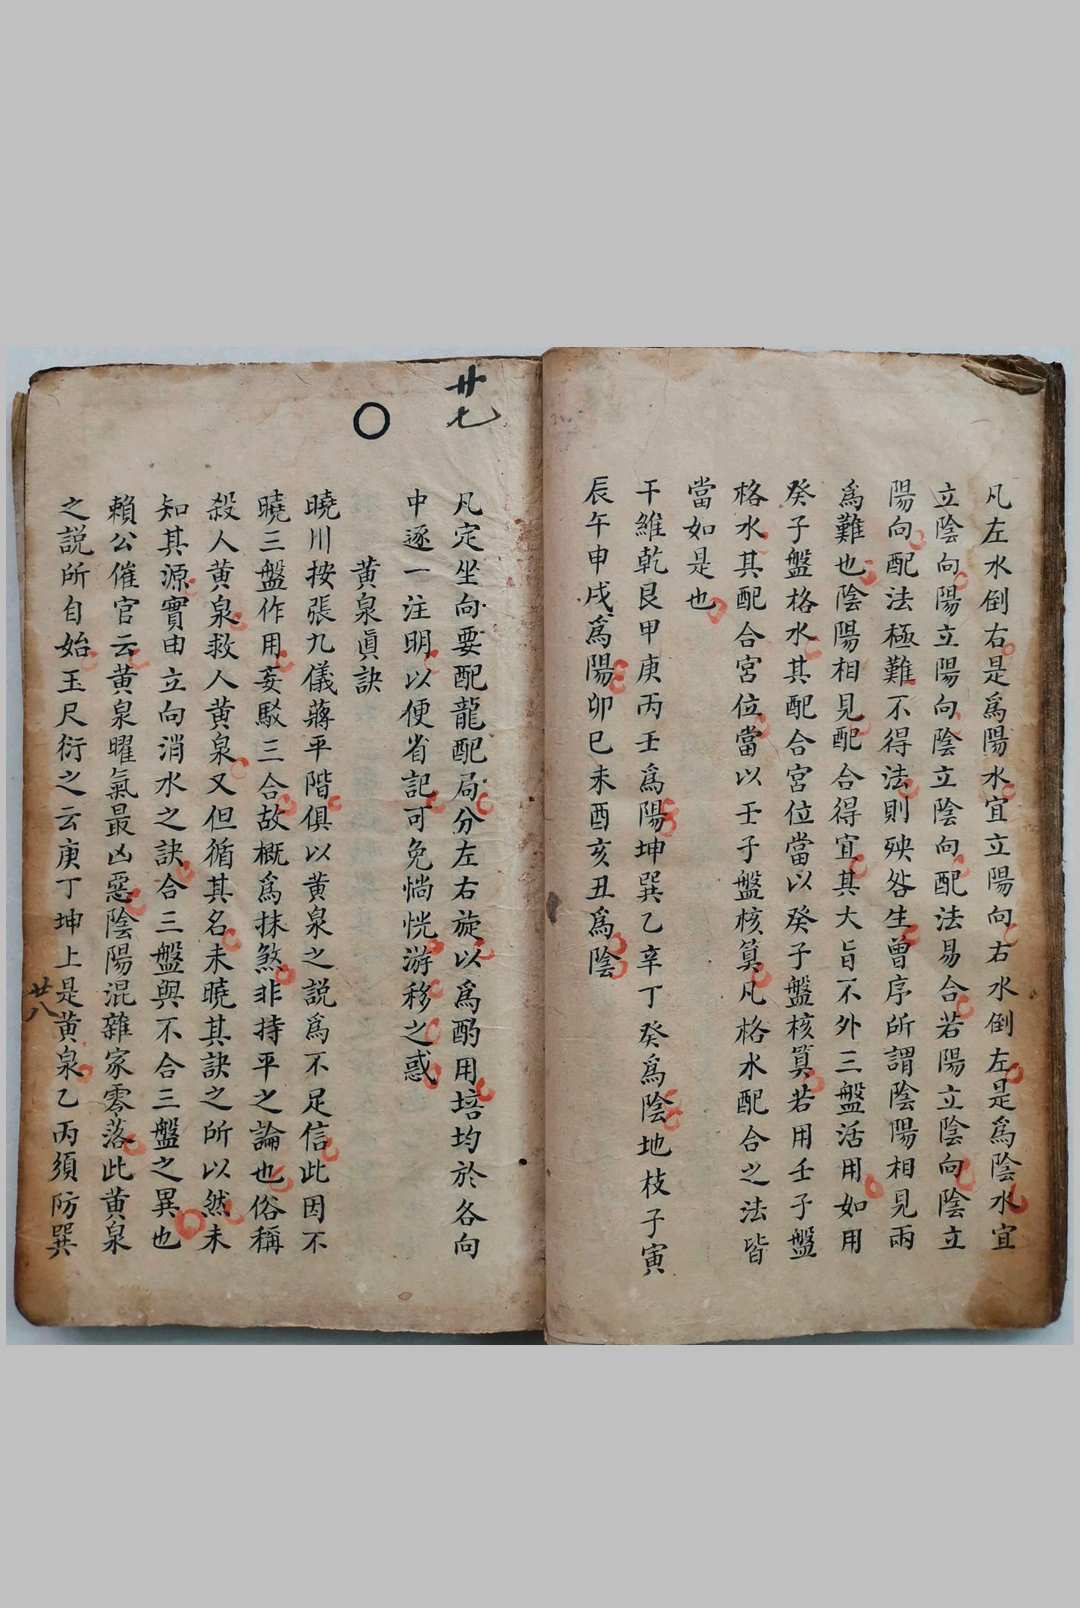 凡左水倒右是爲陽水宜立陽向右水倒左是爲陰水宜
立陰向陽立陽向陰立陰向配法易合若陽立陰向陰立
陽向配法極難不得法則殃咎生曾序所謂陰陽相見兩
爲難也陰陽相見配合得宜其大旨不外三盤活用如用
癸子盤格水其配合宮位當以癸子盤核算若用壬子盤
格水其配合宮位當以壬子盤核算凡格水配合之法皆
當如是也
干維乾艮甲庚丙壬爲陽坤巽乙辛丁癸爲陰地枝子寅
辰午申戌爲陽卯巳未酉亥丑爲陰
廿七
凡定坐向要配龍配局分左右旋以爲酌用培均於各向
中逐一注明以便省記可免惝恍游移之惑
黄泉眞訣
曉川按張九儀蔣平階俱以黄泉之説爲不足信此因不
曉三盤作用妄駁三合故概爲抹煞非持平之論也俗稱
殺人黄泉救人黄泉又但循其名未曉其訣之所以然未
知其源實由立向消水之訣合三盤與不合三盤之異也
賴公催官云黄泉曜氣最凶惡陰陽混雜家零落此黄泉
之説所自始玉尺衍之云庚丁坤上是黄泉乙丙須防巽
廿八